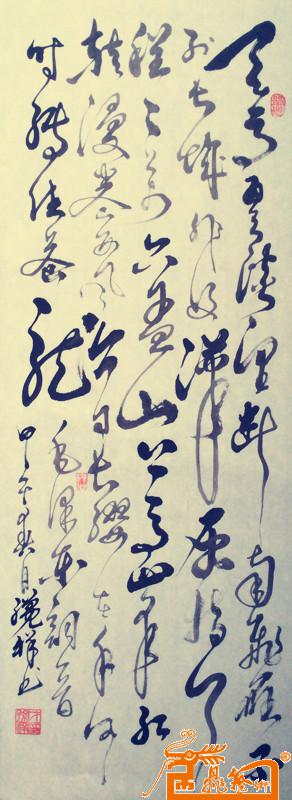 天高云淡望断南飞雁不
到长城非好汉屈指行
程二万六盘山上高峰红
旗漫卷西风今日长缨在手何
时缚住苍龙
毛泽东词一首
甲午春月 祥书